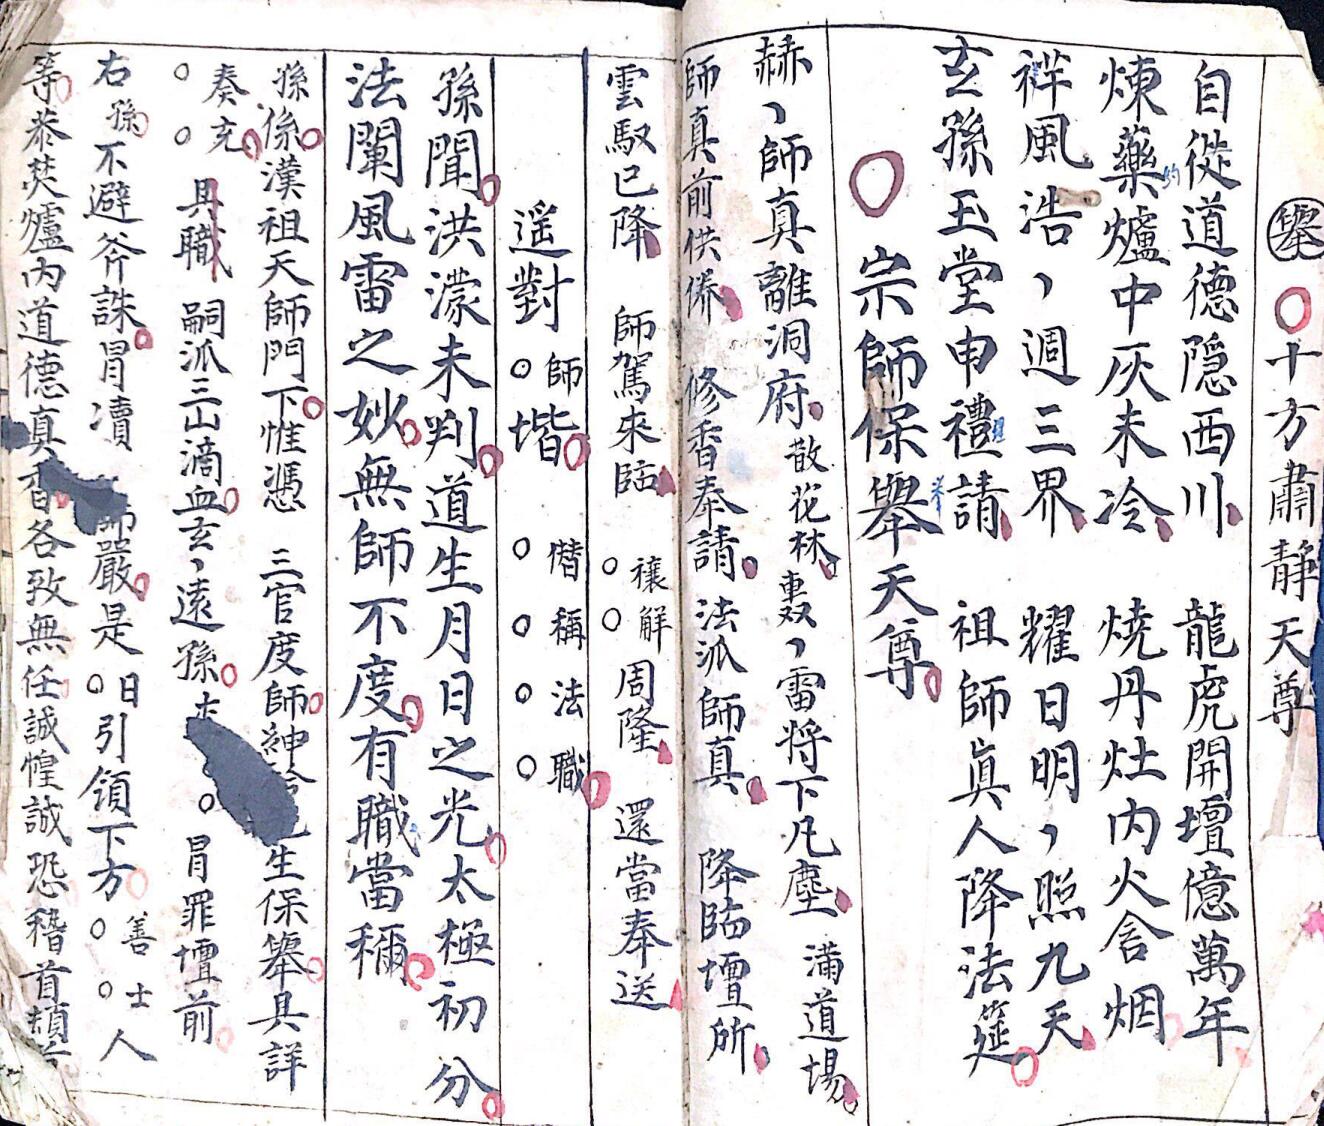 舉 ○十方肅靜天尊
自從道德隱西川 龍虎開壇億萬年
煉藥爐中灰未冷 燒丹灶內火含烟
祥風浩丶週三界 耀日明丶照九天
玄孫玉堂申禮請 祖師真人降法筵
○宗師保舉天尊
赫丶師真離洞府 散花林 轟丶雷将下凡塵 滿道場
師真前供養 修香奉請 法派師真 降臨壇所
雲馭已降 師駕來臨 ○○禳解周隆 還當奉送
遥對○師堦 ○○○○僭稱法職
孫聞洪濛未判道生月日之光太極初分
法闡風雷之妙無師不度有職當稱
孫係漢祖天師門下惟憑 三官度師 生保舉具詳
○○奏充 具職 嗣派三山滴血玄丶遠孫 ○冒罪壇前
右孫不避斧誅冒瀆 師嚴是○日引領下方○○善士人
等恭焚爐內道德真香各致無任誠惶誠恐稽首頓